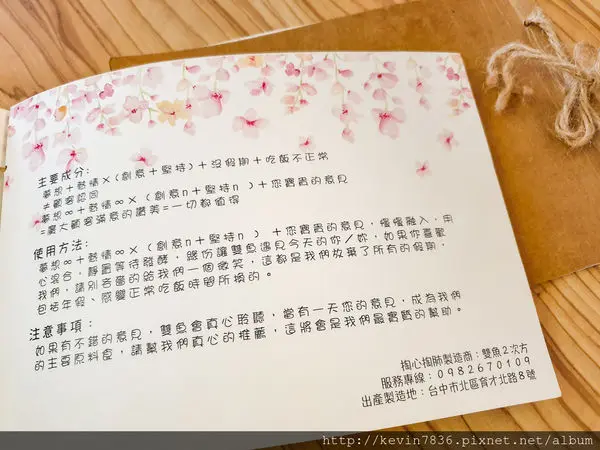 主要成分:
夢想＋熱情×(創意＋堅持)＋沒假期＋吃飯不正常
≠顧客認同
夢想∞＋熱情∞×(創意n＋堅持n)＋您寶貴的意見
=廣大顧客滿意的讚美=一切都值得
使用方法:
夢想∞＋熱情∞×(創意n＋堅持n)＋您寶貴的意見，慢慢融入，用
心混合，靜置等待發酵，緣份讓雙魚遇見今天的你/妳，如果你喜歡
我們，請別吝嗇的給我們一個微笑，這都是我們放棄了所有的假期，
包括年假、感覺正常吃飯時間所換的。
注意事項:
如果有不錯的意見，雙魚會真心聆聽，當有一天您的意見，成為我們
的主要原料食，請幫我們真心的推薦，這將會是我們最實質的幫助。
掏心掏肺製造商:雙魚2次方
服務專線:0982670109
出產製造地:台中市北區育才北路8號
http://kevin7836.pixnet.net/album